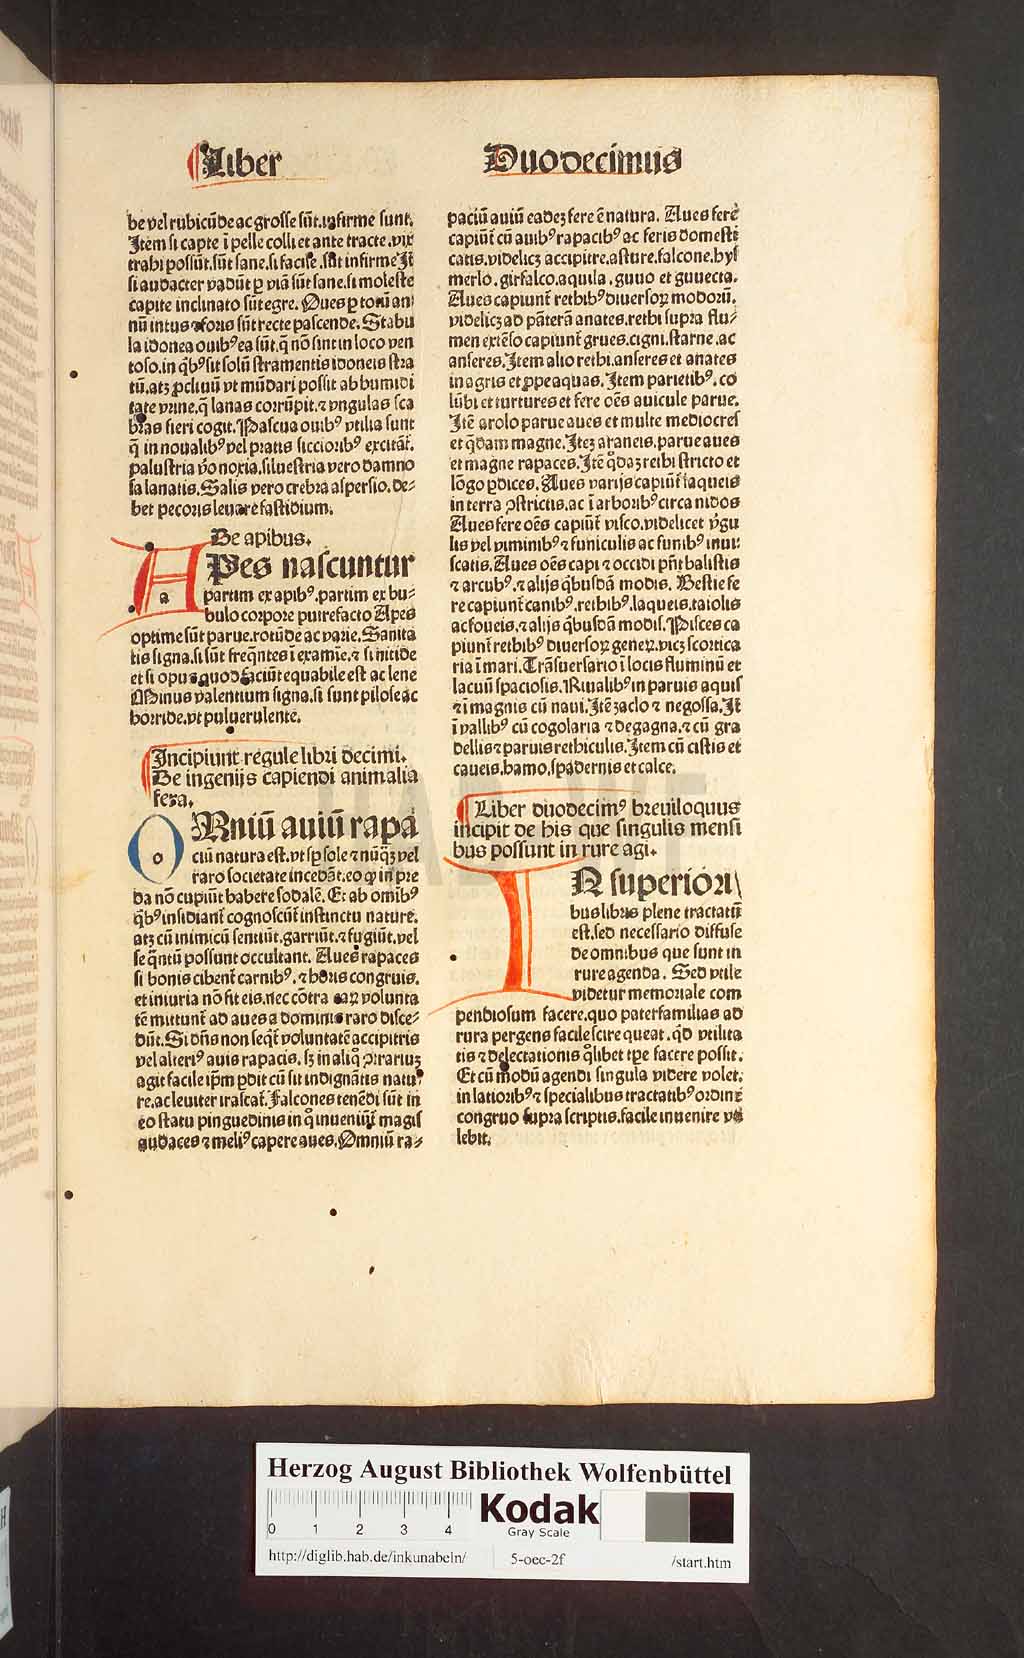 Liber
Duodecimus
be vel rubicūde ac grosse sūt. infirme sunt.
Item si capte ī pelle colli et ante tracte. vix
trahi possūt. sūt sane. si facile. sūt infirme Itē
si audacter vadūt ꝑ viā sūt sane. si moleste
capite inclinato sūt egre. Oues ꝑ totū an
nū intus ⁊ foris sūt recte pascende. Stabu
la idonea ouibꝰ ea sūt. q̄ nō sint in loco ven
toso. in qͥbꝰ sit solū stramentis idoneis stra
tū. atqꝫ ꝓcliuū vt mūdari possit ab humidi
tate vrine. q̄ lanas corrūpit. ⁊ vngulas sca
bras fieri cogit. Pascua ouibꝰ vtilia sunt
q̄ in noualibꝰ vel pratis siccioribꝰ excitāt.
palustria v̄o noxia. siluestria vero damno
sa lanatis. Salis vero crebra aspersio. de⸗
bet pecoris leuare fastidium.
De apibus.
APes nascuntur
partim ex apibꝰ. partim ex bu⸗
bulo corpore putrefacto Apes
optime sūt parue. rotūde ac varie. Sanita
tis signa. si sūt freq̄ntes ī examīe. ⁊ si nitide
et si opus quod faciūt equabile est ac lene
Minus valentium signa. si sunt pilose ac
horride. vt puluerulente.
Incipiunt regule libri decimi.
De ingenijs capiendi animalia
fera.
OMniū auiū rapa
ciū natura est. vt sꝑ sole ⁊ nūqꝫ vel
raro societate incedāt. eo ꝙ in pre
da nō cupiūt habere sodalē. Et ab omībꝰ
qͥbꝰ insidiant̄ cognoscūt instinctu nature.
atqꝫ cū inimicū sentiūt. garriūt. ⁊ fugiūt. vel
se q̄ntū possunt occultant. Aues rapaces
si bonis cibent̄ carnibꝰ. ⁊ horis congruis.
et iniuria nō fit eis. nec cōtra earꝫ volunta
tē mittunt̄ ad aues a dominis raro disce⸗
dūt. Si dn̄s non seqt̄ voluntatē accipitris
vel alteriꝰ auis rapacis. sꝫ in aliq̊ ꝯtrariuꝫ
agit facile ip̄m ꝑdit cū sit indignātis natu
re. ac leuiter irascat̄. Falcones tenēdi sūt in
eo statu pinguedinis in q̊ inueniūt magis
audaces ⁊ meliꝰ capere aues. Omniū ra⸗
paciū auiū eadeꝫ fere ē natura. Aues ferē
capiūt̄ cū auibꝰ rapacibꝰ ac feris domesti
catis. videlicꝫ accipitre. asture. falcone. hyl
merlo. girfalco. aquila. guuo et guuecta.
Aues capiunt̄ rethibꝰ diuersoꝝ modorū.
videlicꝫ ad pāterā anates. rethi supra flu⸗
men extēso capiunt̄ grues. cigni. starne. ac
anseres. Item alio rethi. anseres et anates
in agris et ꝓpe aquas. Item parietibꝰ. co
lūbi et turtures et fere oēs auicule parue.
Itē arolo parue aues et multe mediocres
et q̄dam magne. Iteꝫ araneis. parue aues
et magne rapaces. Itē q̊daꝫ rethi stricto et
lōgo ꝑdices. Aues varijs capiūt̄ laqueis
in terra ꝯstrictis. ac ī arboribꝰ circa nidos
Aues fere oēs capiūt̄ visco. videlicet v̄gu
lis vel viminibꝰ ⁊ funiculis ac funibꝰ inui
scatis. Aues oēs capi ⁊ occidi pn̄t balistis
⁊ arcubꝰ. ⁊ alijs qͥbusdā modis. Bestie fe
re capiunt̄ canibꝰ. rethibꝰ. laqueis. taiolis
ac foueis. ⁊ alijs qͥbusdā modis. Pisces ca
piunt̄ rethibꝰ diuersoꝝ generꝫ. vicꝫ scortica
ria ī mari. Trāsuersario ī locis fluminū et
lacuū spaciosis. Riualibꝰ in paruis aquis
⁊ ī magnis cū naui. Itē ꝫaclo ⁊ negossa. Itē
ī vallibꝰ cū cogolaria ⁊ degagna. ⁊ cū gra
dellis ⁊ paruis rethiculis. Item cū cistis et
caueis. hamo. spadernis et calce.
Liber duodecimꝰ breuiloquus
incipit de his que singulis mensi
bus possunt in rure agi.
IN superiori
bus libris plene tractatū
est. sed necessario diffuse
de omnibus que sunt in
rure agenda. Sed vtile
videtur memoriale com
pendiosum facere. quo paterfamilias ad
rura pergens facile scire queat. qd̄ vtilita
tis ⁊ delectationis q̊libet tꝑe facere possit.
Et cū modū agendi singula videre volet.
in latioribꝰ ⁊ specialibus tractatibꝰ ordine
congruo supra scriptis. facile inuenire va
lebit.
Herzog August Bibliothek Wolfenbüttel
0 1 2 3 4
Kodak
Gray Scale
http://diglib.hab.de/inkunabeln/ 5-oec-2f /start.htm